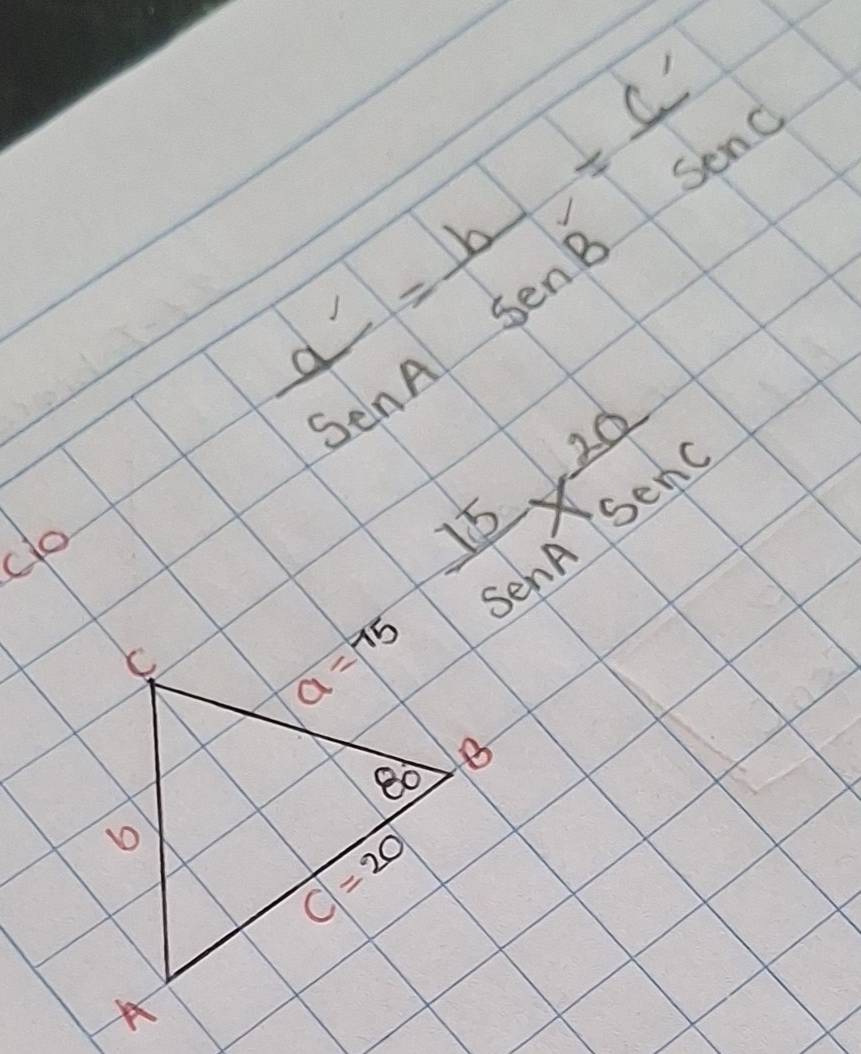 a / Sen A = b / Sen B = C / Sen C
15 / Sen A X 20 / Sen C
cio
C
a = 15
B
80°
b
C = 20
A